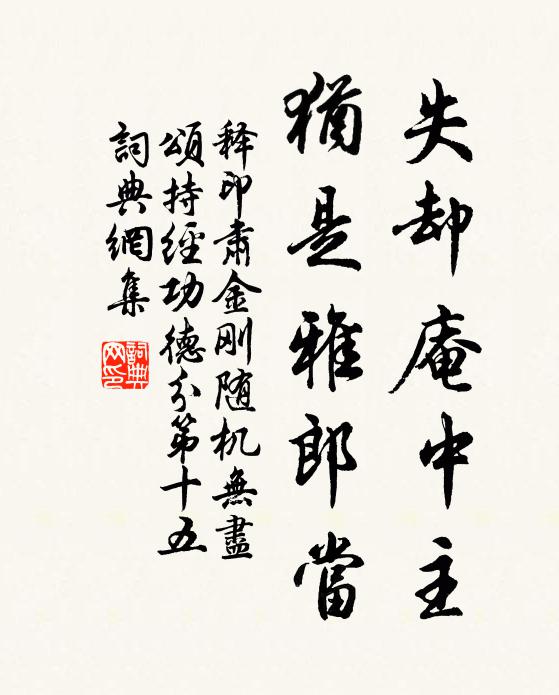 失却庵中主
猶是雅郎當
释印肃金刚随机無盡
頌持經功德分第十五
詞典網集
詞典
网印